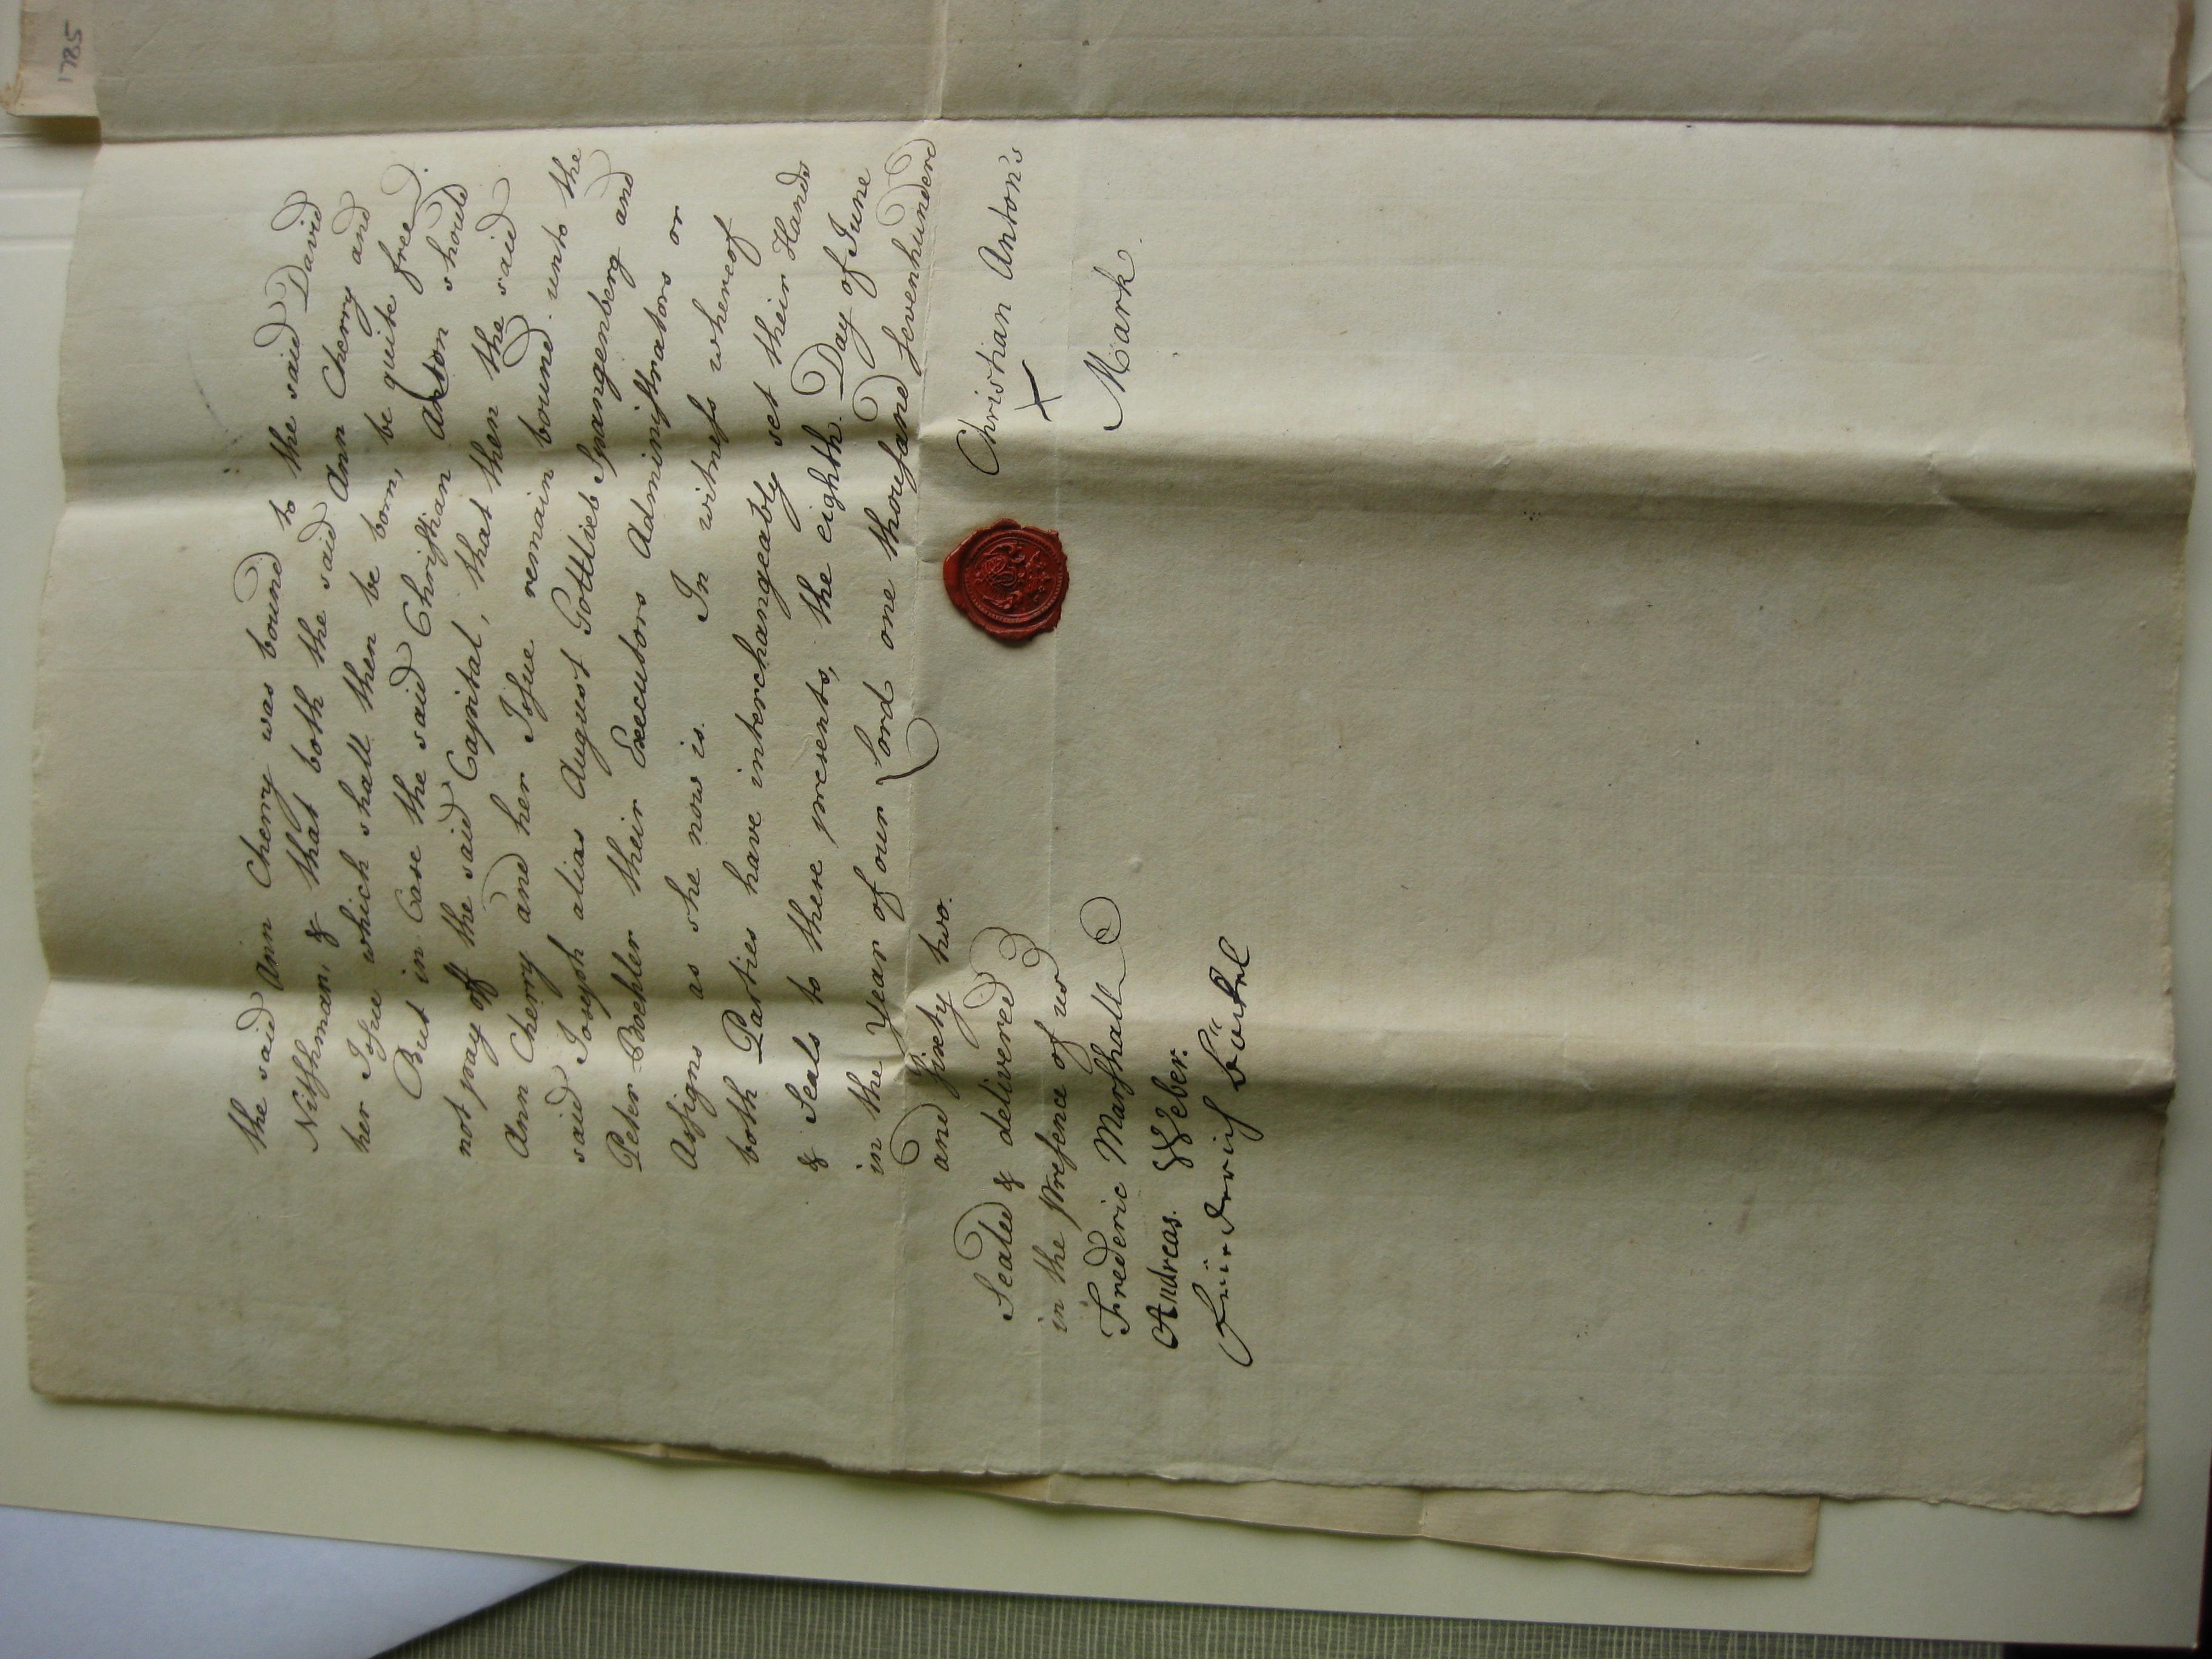 1785
the said Ann Cherry was bound to the said David
Nitshman, & that both the said Ann Cherry and
her Issue which shall then be born, be quite free.
But in Case the said Christian Anton should
not pay off the said Capital, that then the said
Ann Cherry and her Issue remain bound unto the
said Joseph alias August Gottlieb Spangenberg and
Peter Boehler their Executors Administrators or
Assigns as she now is. In witness whereof
both Parties have interchangeably set their Hands
& Seals to these presents, the eighth Day of June
in the Year of our Lord one thousand sevenhunderd
and sixty two.
Sealed & delivered
in the presence of us
Christian Anton's
X
Mark.
Frederic Marshall
Andreas Weber.
Friederich Böckel